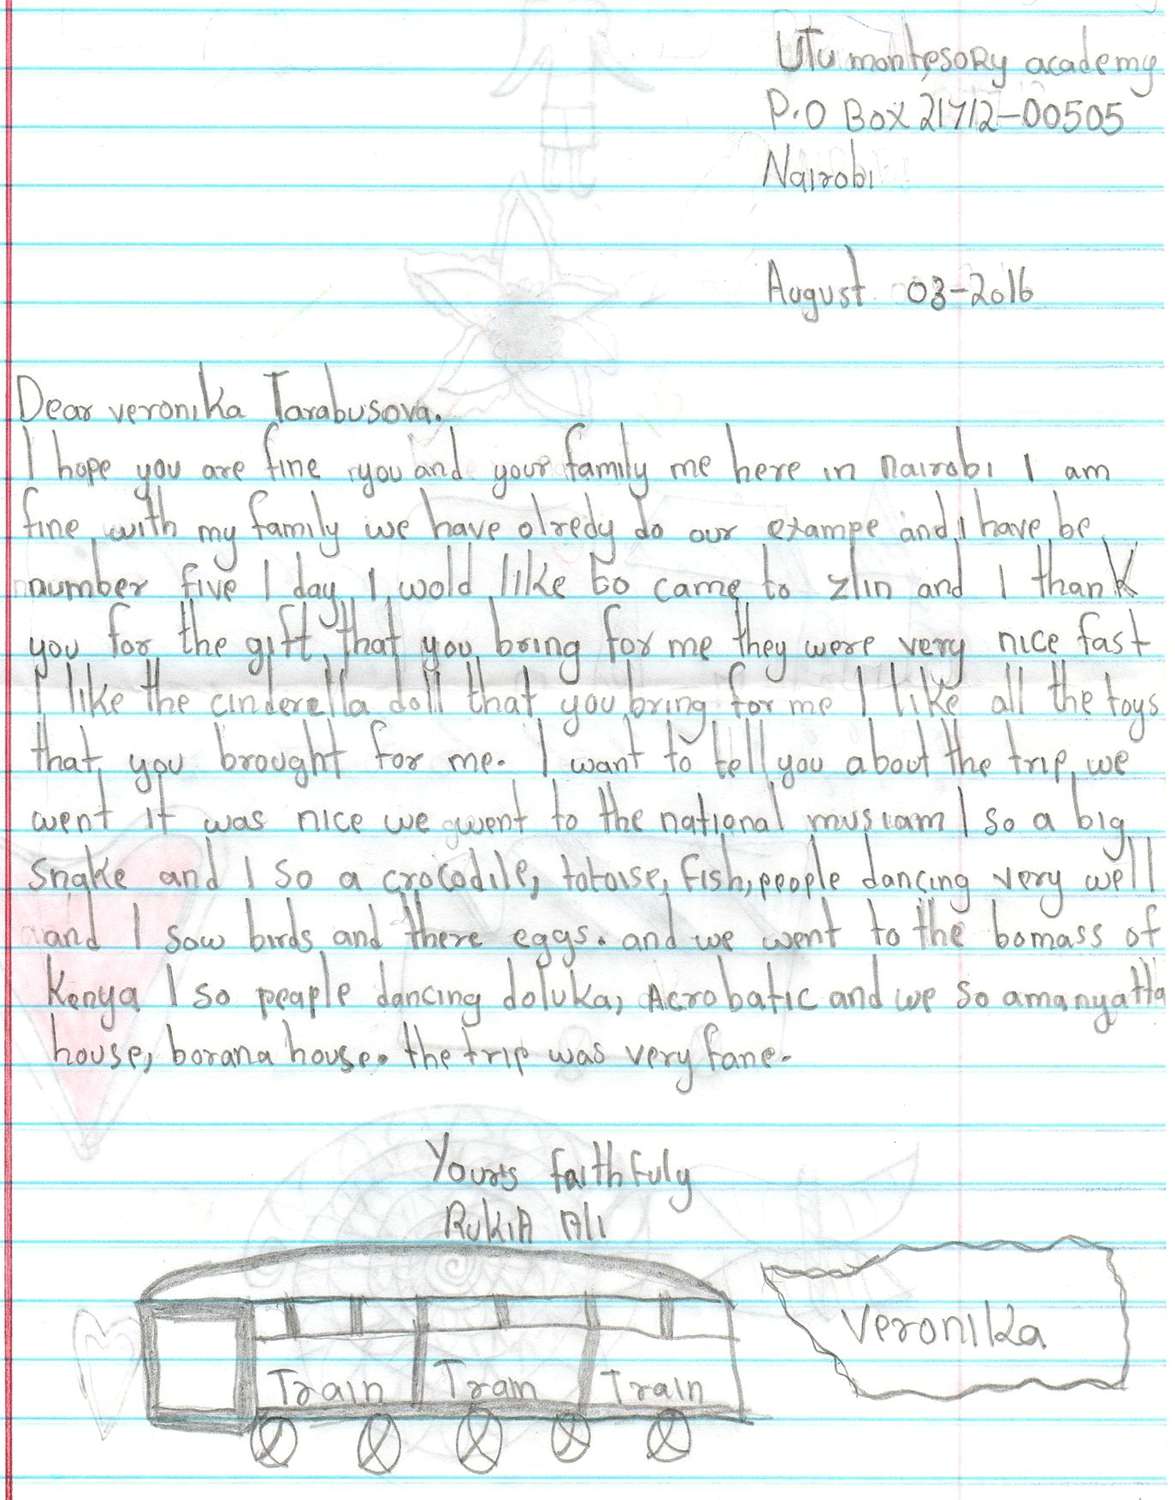 UTu montesory academy
P.O Box 21712-00505
Nairobi
August 03-2016
Dear veronika Tarabusova.
I hope you are fine you and your family me here in nairobi I am
fine with my family we have olredy do our exampe and I have be
number five I day I wold like to came to zlin and I thank
you for the gift that you bring for me they were very nice fast
I like the cinderella doll that you bring for me I like all the toys
that you brought for me. I want to tell you about the trip we
went it was nice we gwent to the national musiam I so a big
snake and I so a crocodile, totoise, fish, people dancing very well
and I sow birds and there eggs. and we went to the bomass of
Kenya I so peaple dancing doluka, Acrobatic and we so amanyatta
house, borana house. the trip was very fane.
Yours faithfuly
RukiA Ali
Train Train Train
Veronika